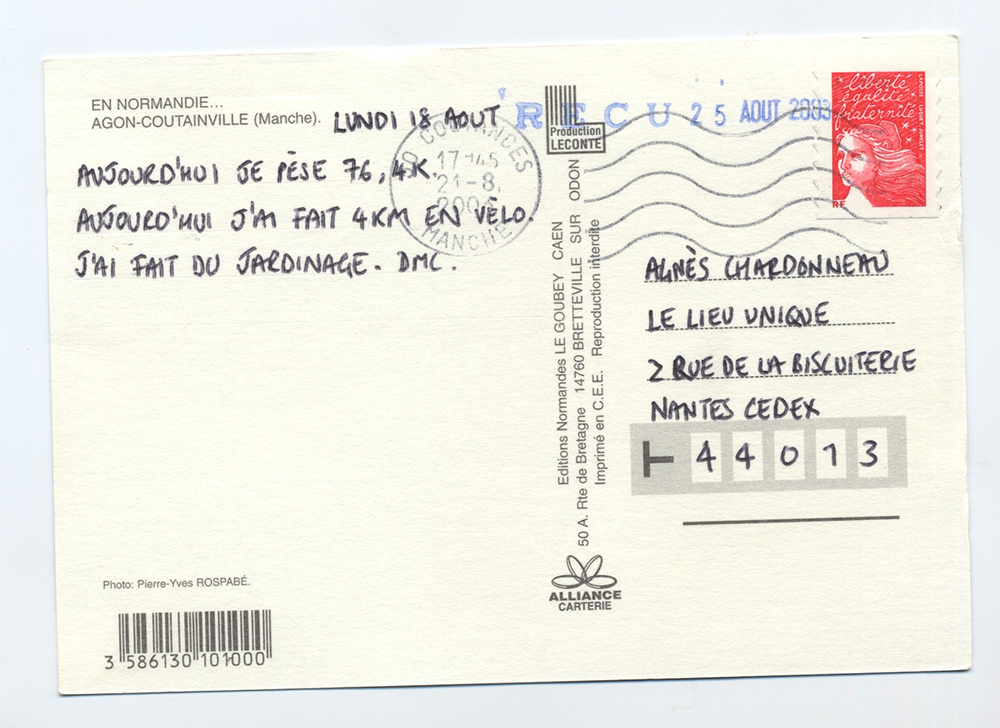 EN NORMANDIE...
AGON-COUTAINVILLE (Manche).
LUNDI 18 AOUT
AUJOURD'HUI JE PÈSE 76,4K.
AUJOURD'HUI J'AI FAIT 4KM EN VÉLO.
J'AI FAIT DU JARDINAGE. DMC.
COUTANCES
17H45
21-8
MANCHE
RECU 25 AOUT 2003
Production
LECONTE
liberté
égalité
fraternité
RF
Editions Normandes LE GOUBEY CAEN
50 A. Rte de Bretagne 14760 BRETTEVILLE SUR ODON
Imprimé en C.E.E. Reproduction interdite
AGNÈS CHARDONNEAU
LE LIEU UNIQUE
2 RUE DE LA BISCUITERIE
NANTES CEDEX
44013
Photo: Pierre-Yves ROSPABÉ.
3 586130 101000
ALLIANCE
CARTERIE